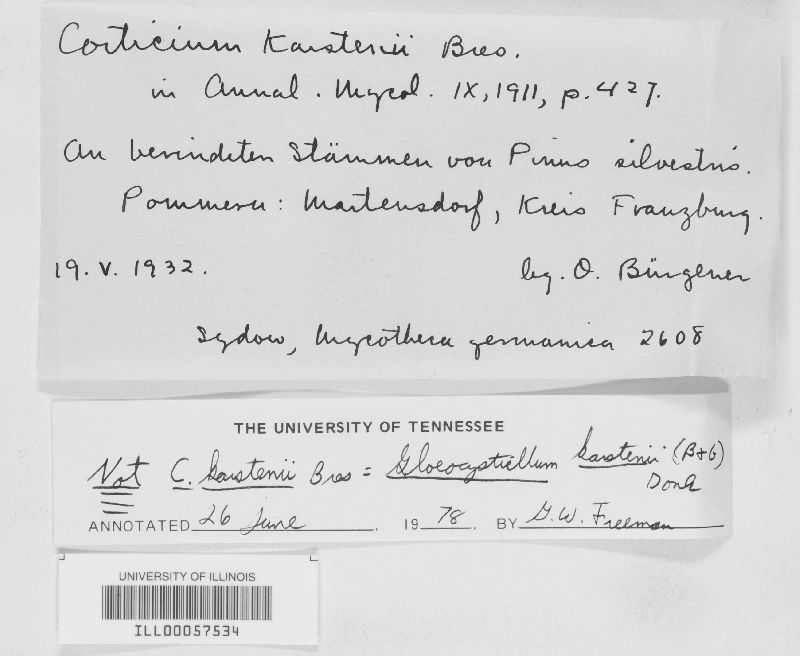 Corticium Karstenii Bres.
in Annal. Mycol. IX, 1911, p. 427.
An berindeten Stämmen von Pinus silvestris.
Pommern: Martensdorf, Kreis Franzburg.
19. V. 1932. leg. O. Bürgener
Sydow, Mycotheca germanica 2608
THE UNIVERSITY OF TENNESSEE
Not C. karstenii Bres = Gloeocystiellum karstenii (B+G)
Donk
ANNOTATED 26 June 1978. BY G.W. Freeman
UNIVERSITY OF ILLINOIS
ILL00057534